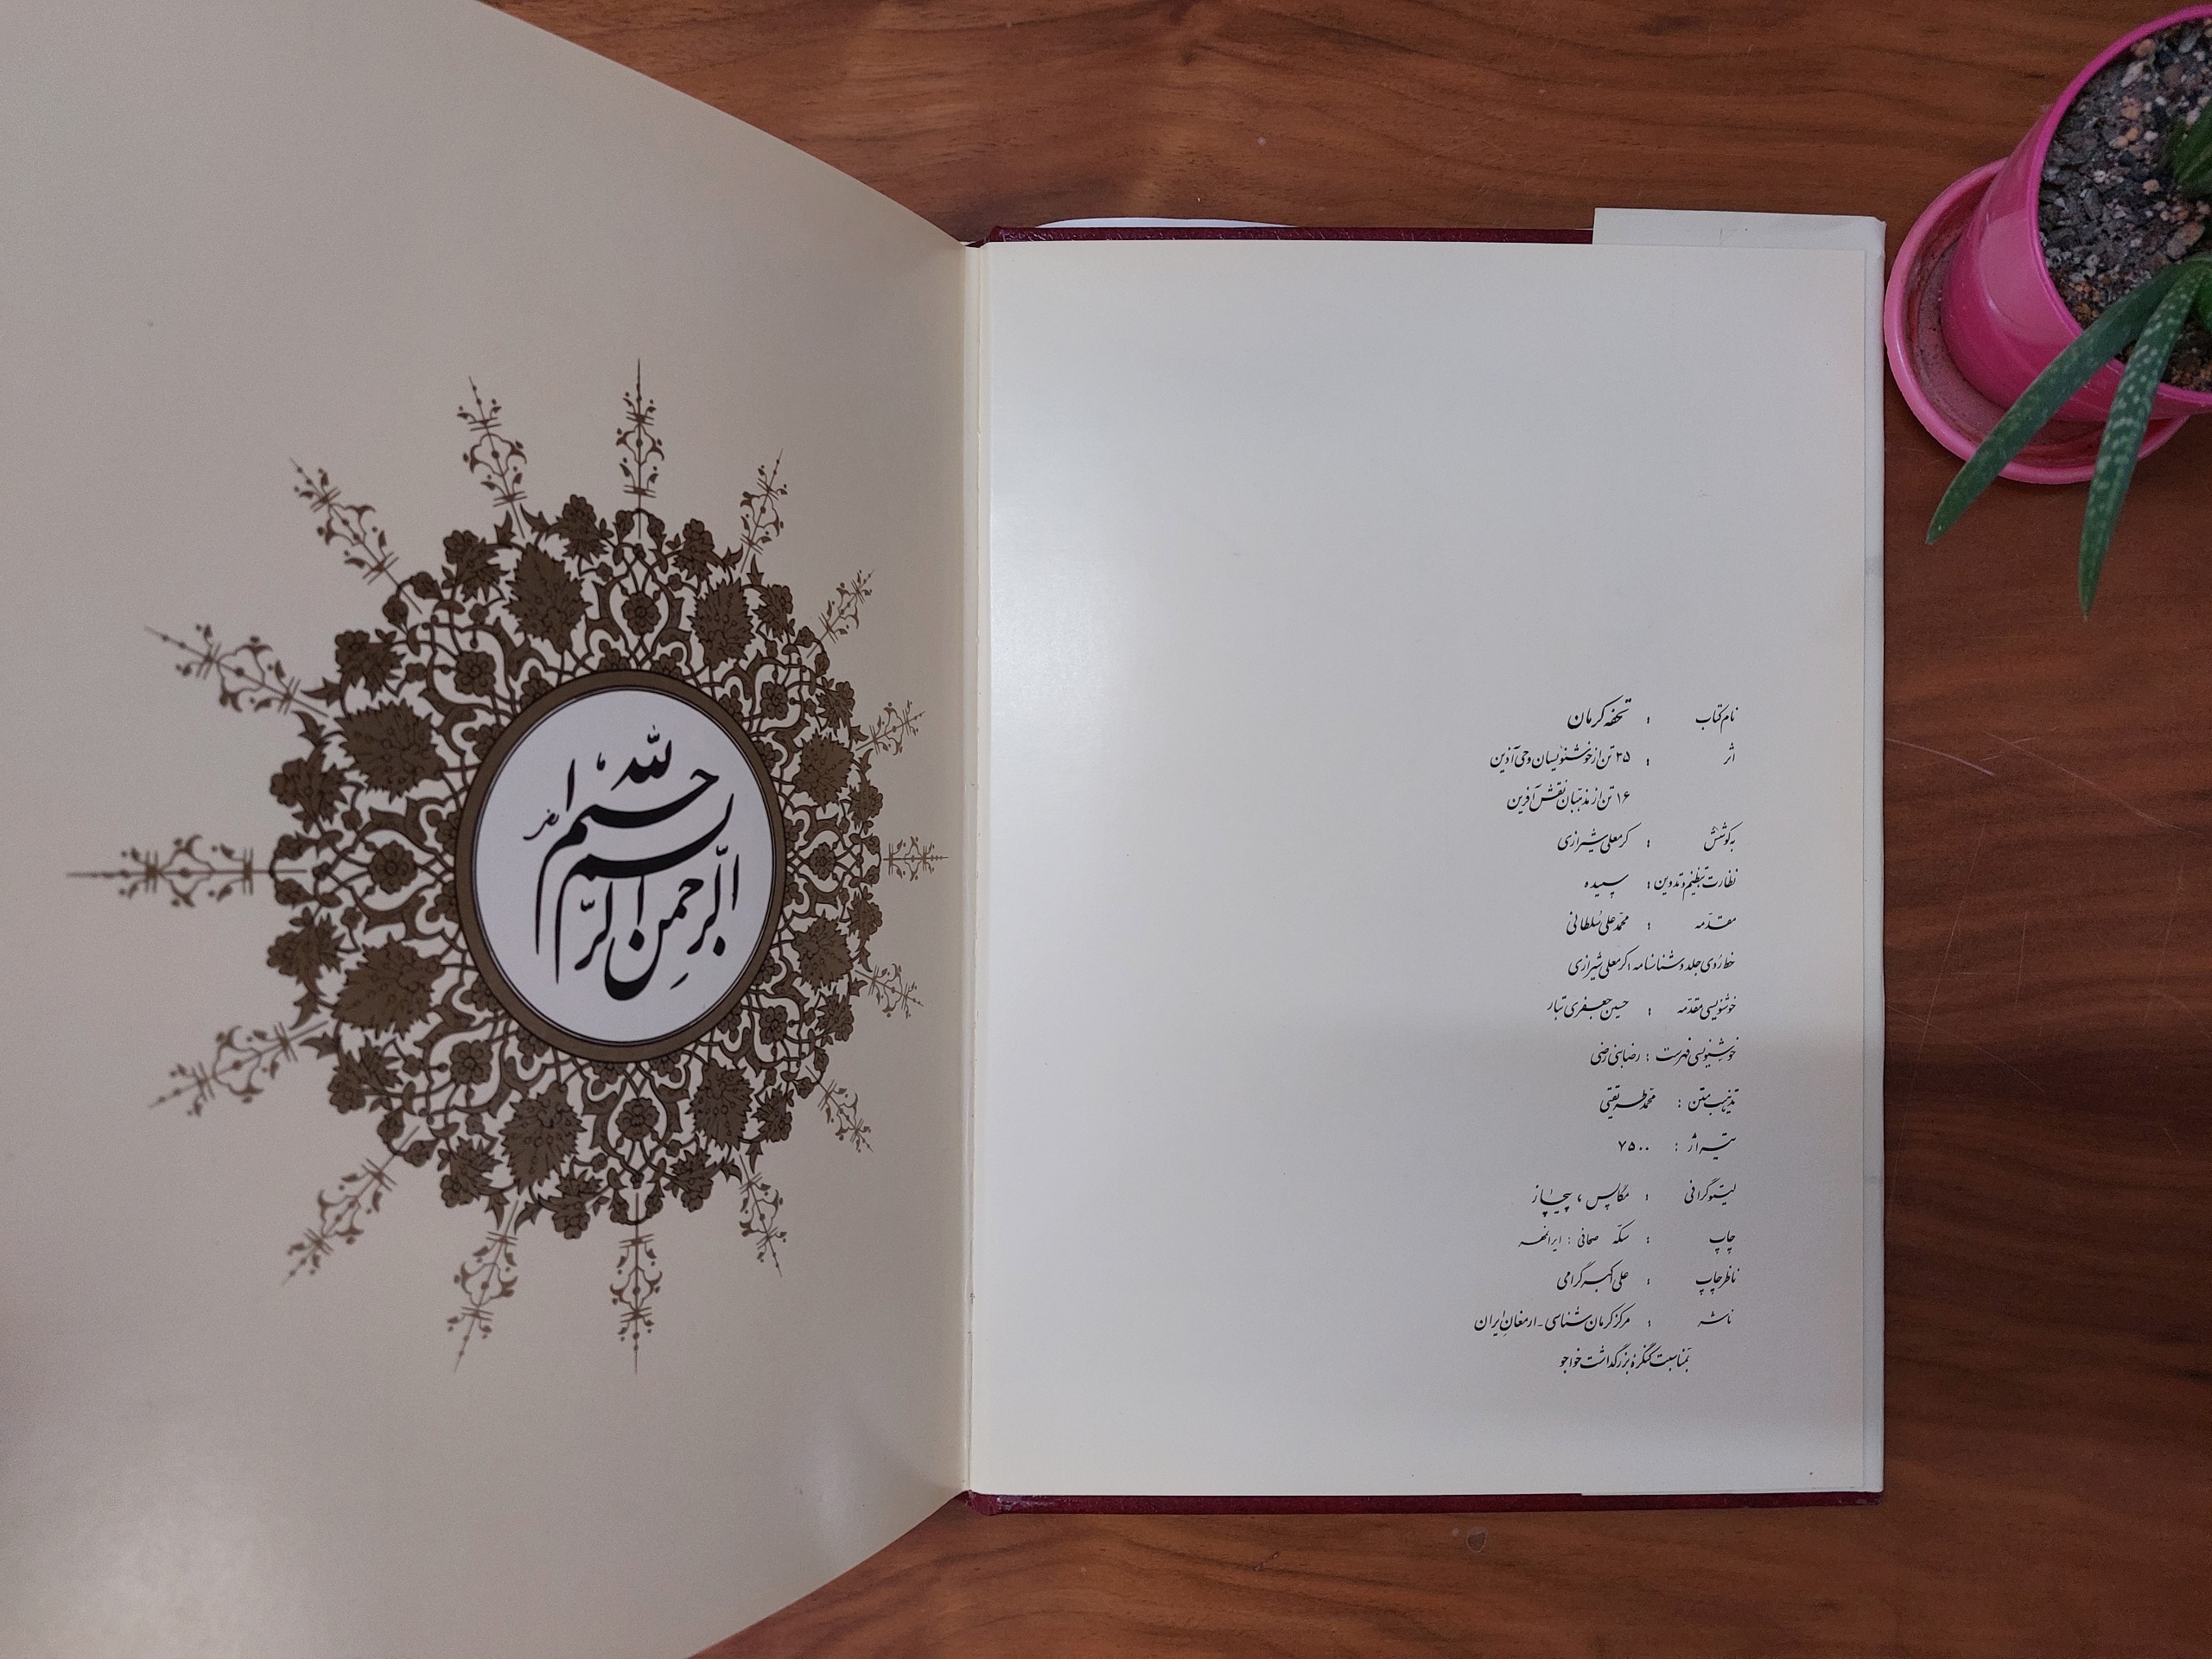 بسم الله الرحمن الرحیم
نام کتاب : تحفه کرمان
اثر : ۳۵ تن از خوشنویسان وحی آذین
۱۶ تن از مذهّبان نقش آفرین
به کوشش : کرمعلی شیرازی
نظارت تنظیم و تدوین : سپیده
مقدّمه : محمّد علی سُلطانی
خط روی جلد و شناسنامه : کرمعلی شیرازی
خوشنویسی مقدّمه : حسین جعفری تبار
خوشنویسی فهرست : رضا بنی رضی
تذهیب متن : محمّد طریقتی
تیراژ : ۷۵۰۰
لیتوگرافی : مگاپس ، پیچاز
چاپ : سکّه صحافی : ایرانمهر
ناظر چاپ : علی اکبر گرامی
ناشر : مرکز کرمان شناسی - ارمغان ایران
بمناسبت کنگرهٔ بزرگداشت خواجو